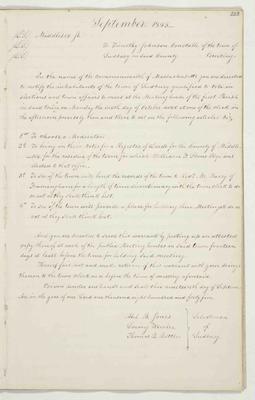 September 1845.
Middlesex ss.
To Timothy Johnson Constable of the town of
Sudbury in said County Greeting.
In the name of the Commonwealth of Massachusetts you are directed
to notify the inhabitants of the town of Sudbury qualified to vote in
elections and town affairs to meet at the Meeting house of the first Parish
in said town on Monday the sixth day of October next at one of the clock in
the afternoon precisely then and there to act on the following articles viz.
1st To choose a Moderator.
2d To bring in their votes for a Register of Deeds for the County of Middle
sex for the residue of the term for which William F. Stone Esqr was
elected to that office.
3d To see if the town will lend the records of the town to Revd. Mr. Barry of
Framingham for a length of time discretionary with the town &c or to do
or act as they shall think best.
4th To see if the town will provide a place for holding their Meetings do or
act as they shall think best.
And you are directed to serve this warrant by posting up an attested
copy thereof at each of the Public Meeting houses in said town fourteen
days at least before the time for holding said meeting.
Hereof fail not and make return of this warrant with your doings
thereon to the town Clerk on or before the time of meeting aforesaid.
Given under our hands and seals this nineteenth day of Septem
ber in the year of our Lord one thousand eight hundred and forty five.
Abel B. Jones
Selectmen
of
Thomas B.
Sudbury